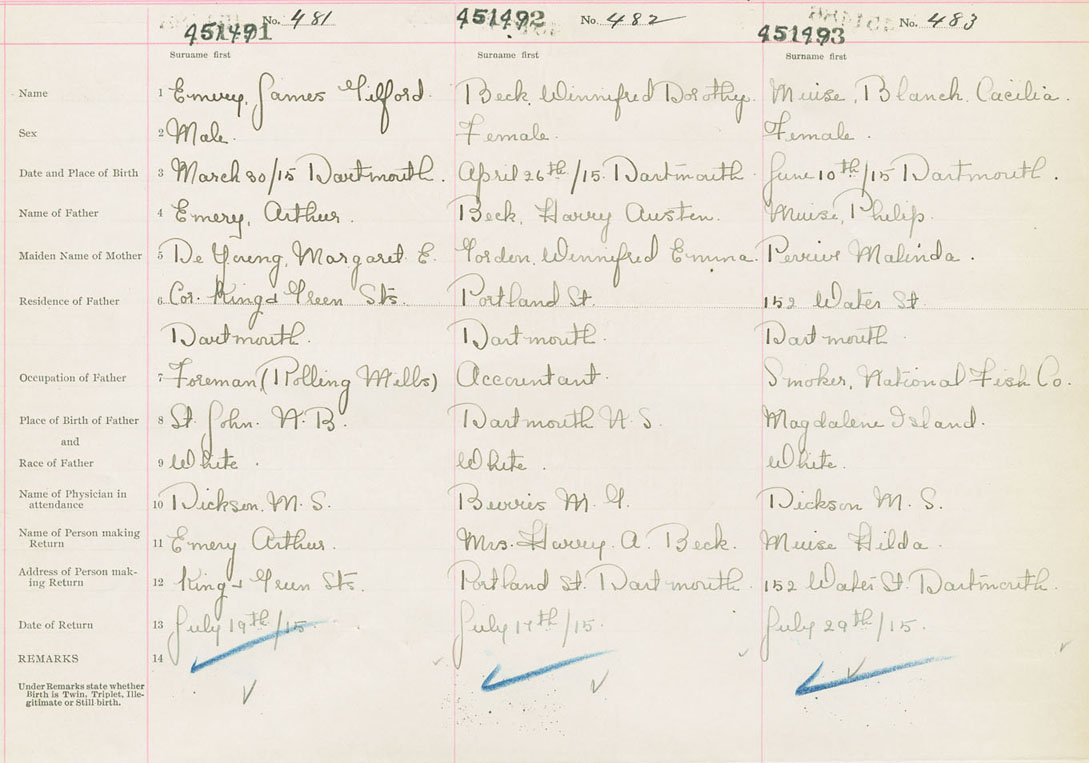 No. 481 No. 482 No. 483
451491 451492 451493
Surname first Surname first Surname first
Name 1 Emery, James Gilford. Beck, Winnifred Dorothy. Muise, Blanch, Cacilia.
Sex 2 Male. Female. Female.
Date and Place of Birth 3 March 30/15 Dartmouth. April 26th/15. Dartmouth. June 10th/15 Dartmouth.
Name of Father 4 Emery, Arthur. Beck, Harry Austen. Muise, Philip.
Maiden Name of Mother 5 De Young, Margaret E. Gorden, Winnifred Emma. Malinda.
Residence of Father 6 Cor. King & Green Sts. Portland St. 152 Water St.
Dartmouth. Dartmouth. Dartmouth.
Occupation of Father 7 Foreman (Rolling Mills) Accountant. Smoker, National Fish Co.
Place of Birth of Father 8 St. John. N.B. Dartmouth N.S. Magdalene Island.
and
Race of Father 9 White. White. White.
Name of Physician in
attendance 10 Dickson, M. S. Burris M. G. Dickson M. S.
Name of Person making
Return 11 Emery Arthur. Mrs. Harry. A. Beck. Muise Hilda.
Address of Person mak-
ing Return 12 King & Green Sts. Portland St. Dartmouth. 152 Water St. Dartmouth.
Date of Return 13 July 19th/15 July 17th/15. July 29th/15.
REMARKS 14
Under Remarks state whether
Birth is Twin, Triplet, Ille-
gitimate or Still birth.